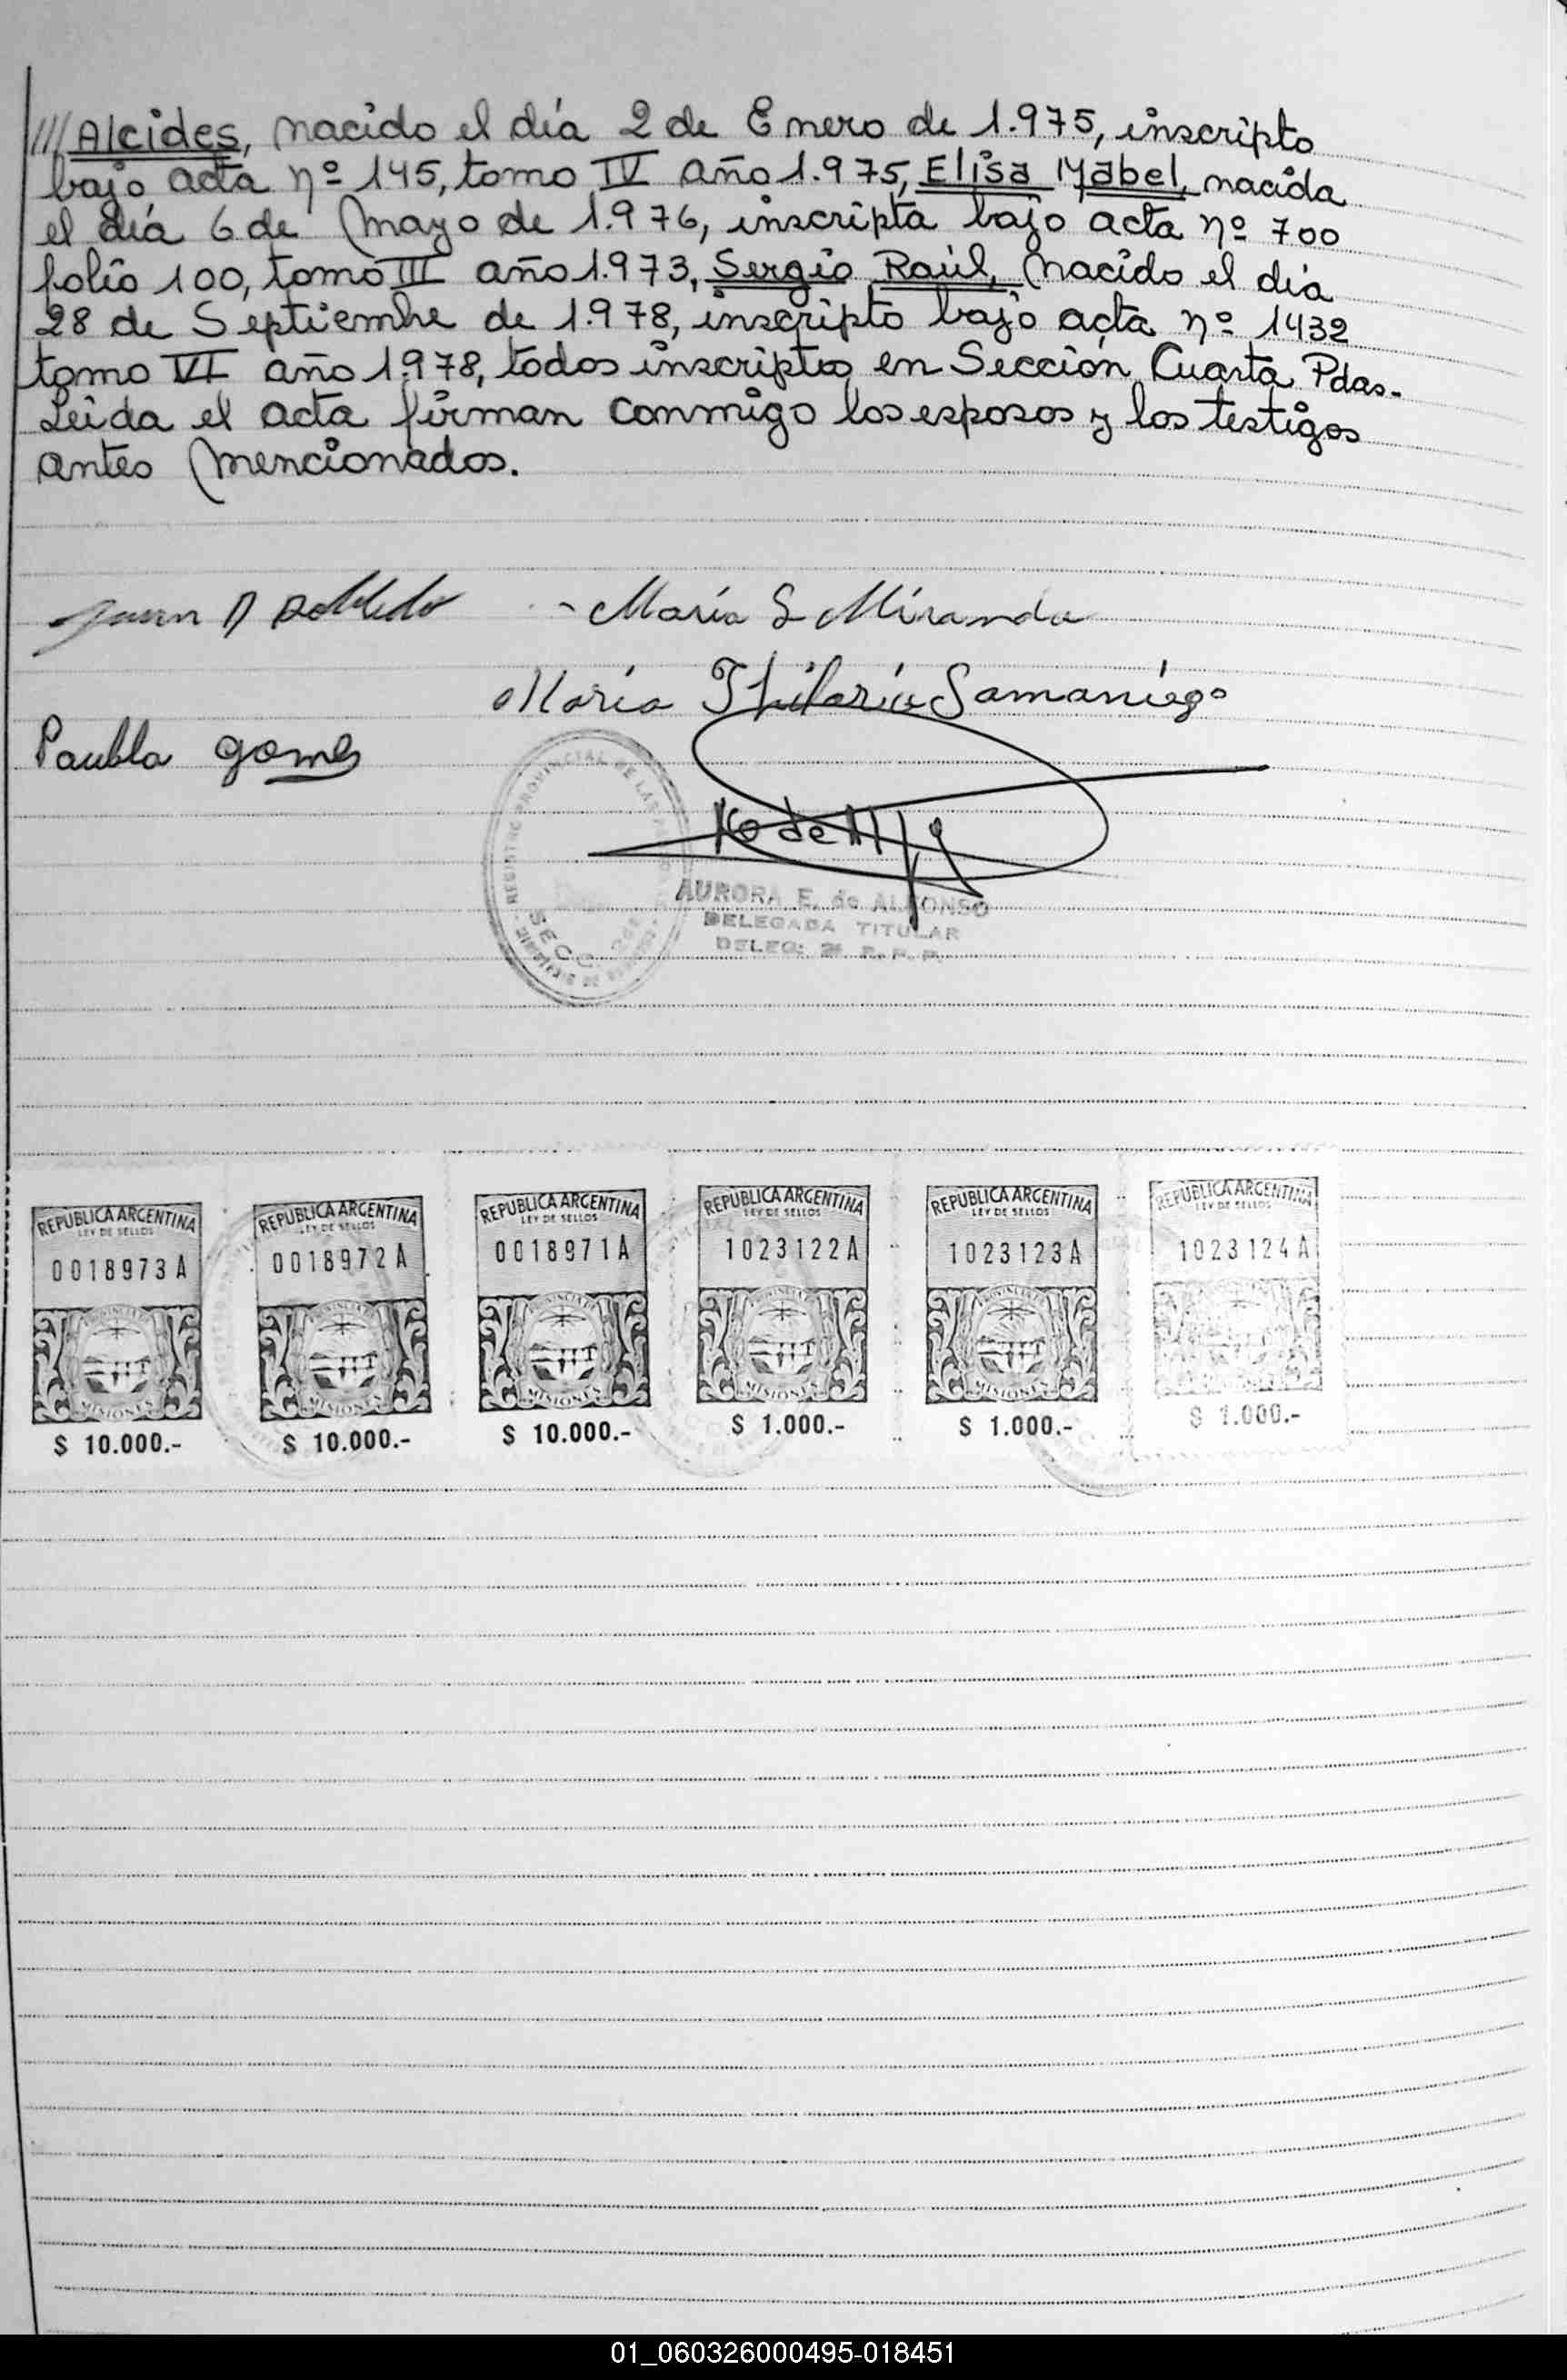 /// Alcides, nacido el día 2 de Enero de 1.975, inscripto
bajo acta nº 145, tomo IV año 1.975, Elisa Mabel, nacida
el día 6 de Mayo de 1.976, inscripta bajo acta nº 700
folio 100, tomo III año 1.973, Sergio Raúl, nacido el día
28 de Septiembre de 1.978, inscripto bajo acta nº 1432
tomo VI año 1.978, todos inscriptos en Sección Cuarta Pdas.-
Leida el acta firman conmigo los esposos y los testigos
antes mencionados.
Juan Robledo
María S Miranda
María Hilaria Samaniego
Paubla gomes
REGISTRO PROVINCIAL DE LAS
SECC. 2da
AURORA E. de ALFONSO
DELEGADA TITULAR
DELEG: 2ª R. P. P.
REPUBLICA ARGENTINA
LEY DE SELLOS
0018973 A
MISIONES
$ 10.000.-
REPUBLICA ARGENTINA
LEY DE SELLOS
0018972 A
MISIONES
$ 10.000.-
REPUBLICA ARGENTINA
LEY DE SELLOS
0018971 A
PROVINCIA DE
MISIONES
$ 10.000.-
REPUBLICA ARGENTINA
LEY DE SELLOS
1023122 A
MISIONES
$ 1.000.-
REPUBLICA ARGENTINA
LEY DE SELLOS
1023123 A
MISIONES
$ 1.000.-
REPUBLICA ARGENTINA
LEY DE SELLOS
1023124 A
$ 1.000.-
01_060326000495-018451